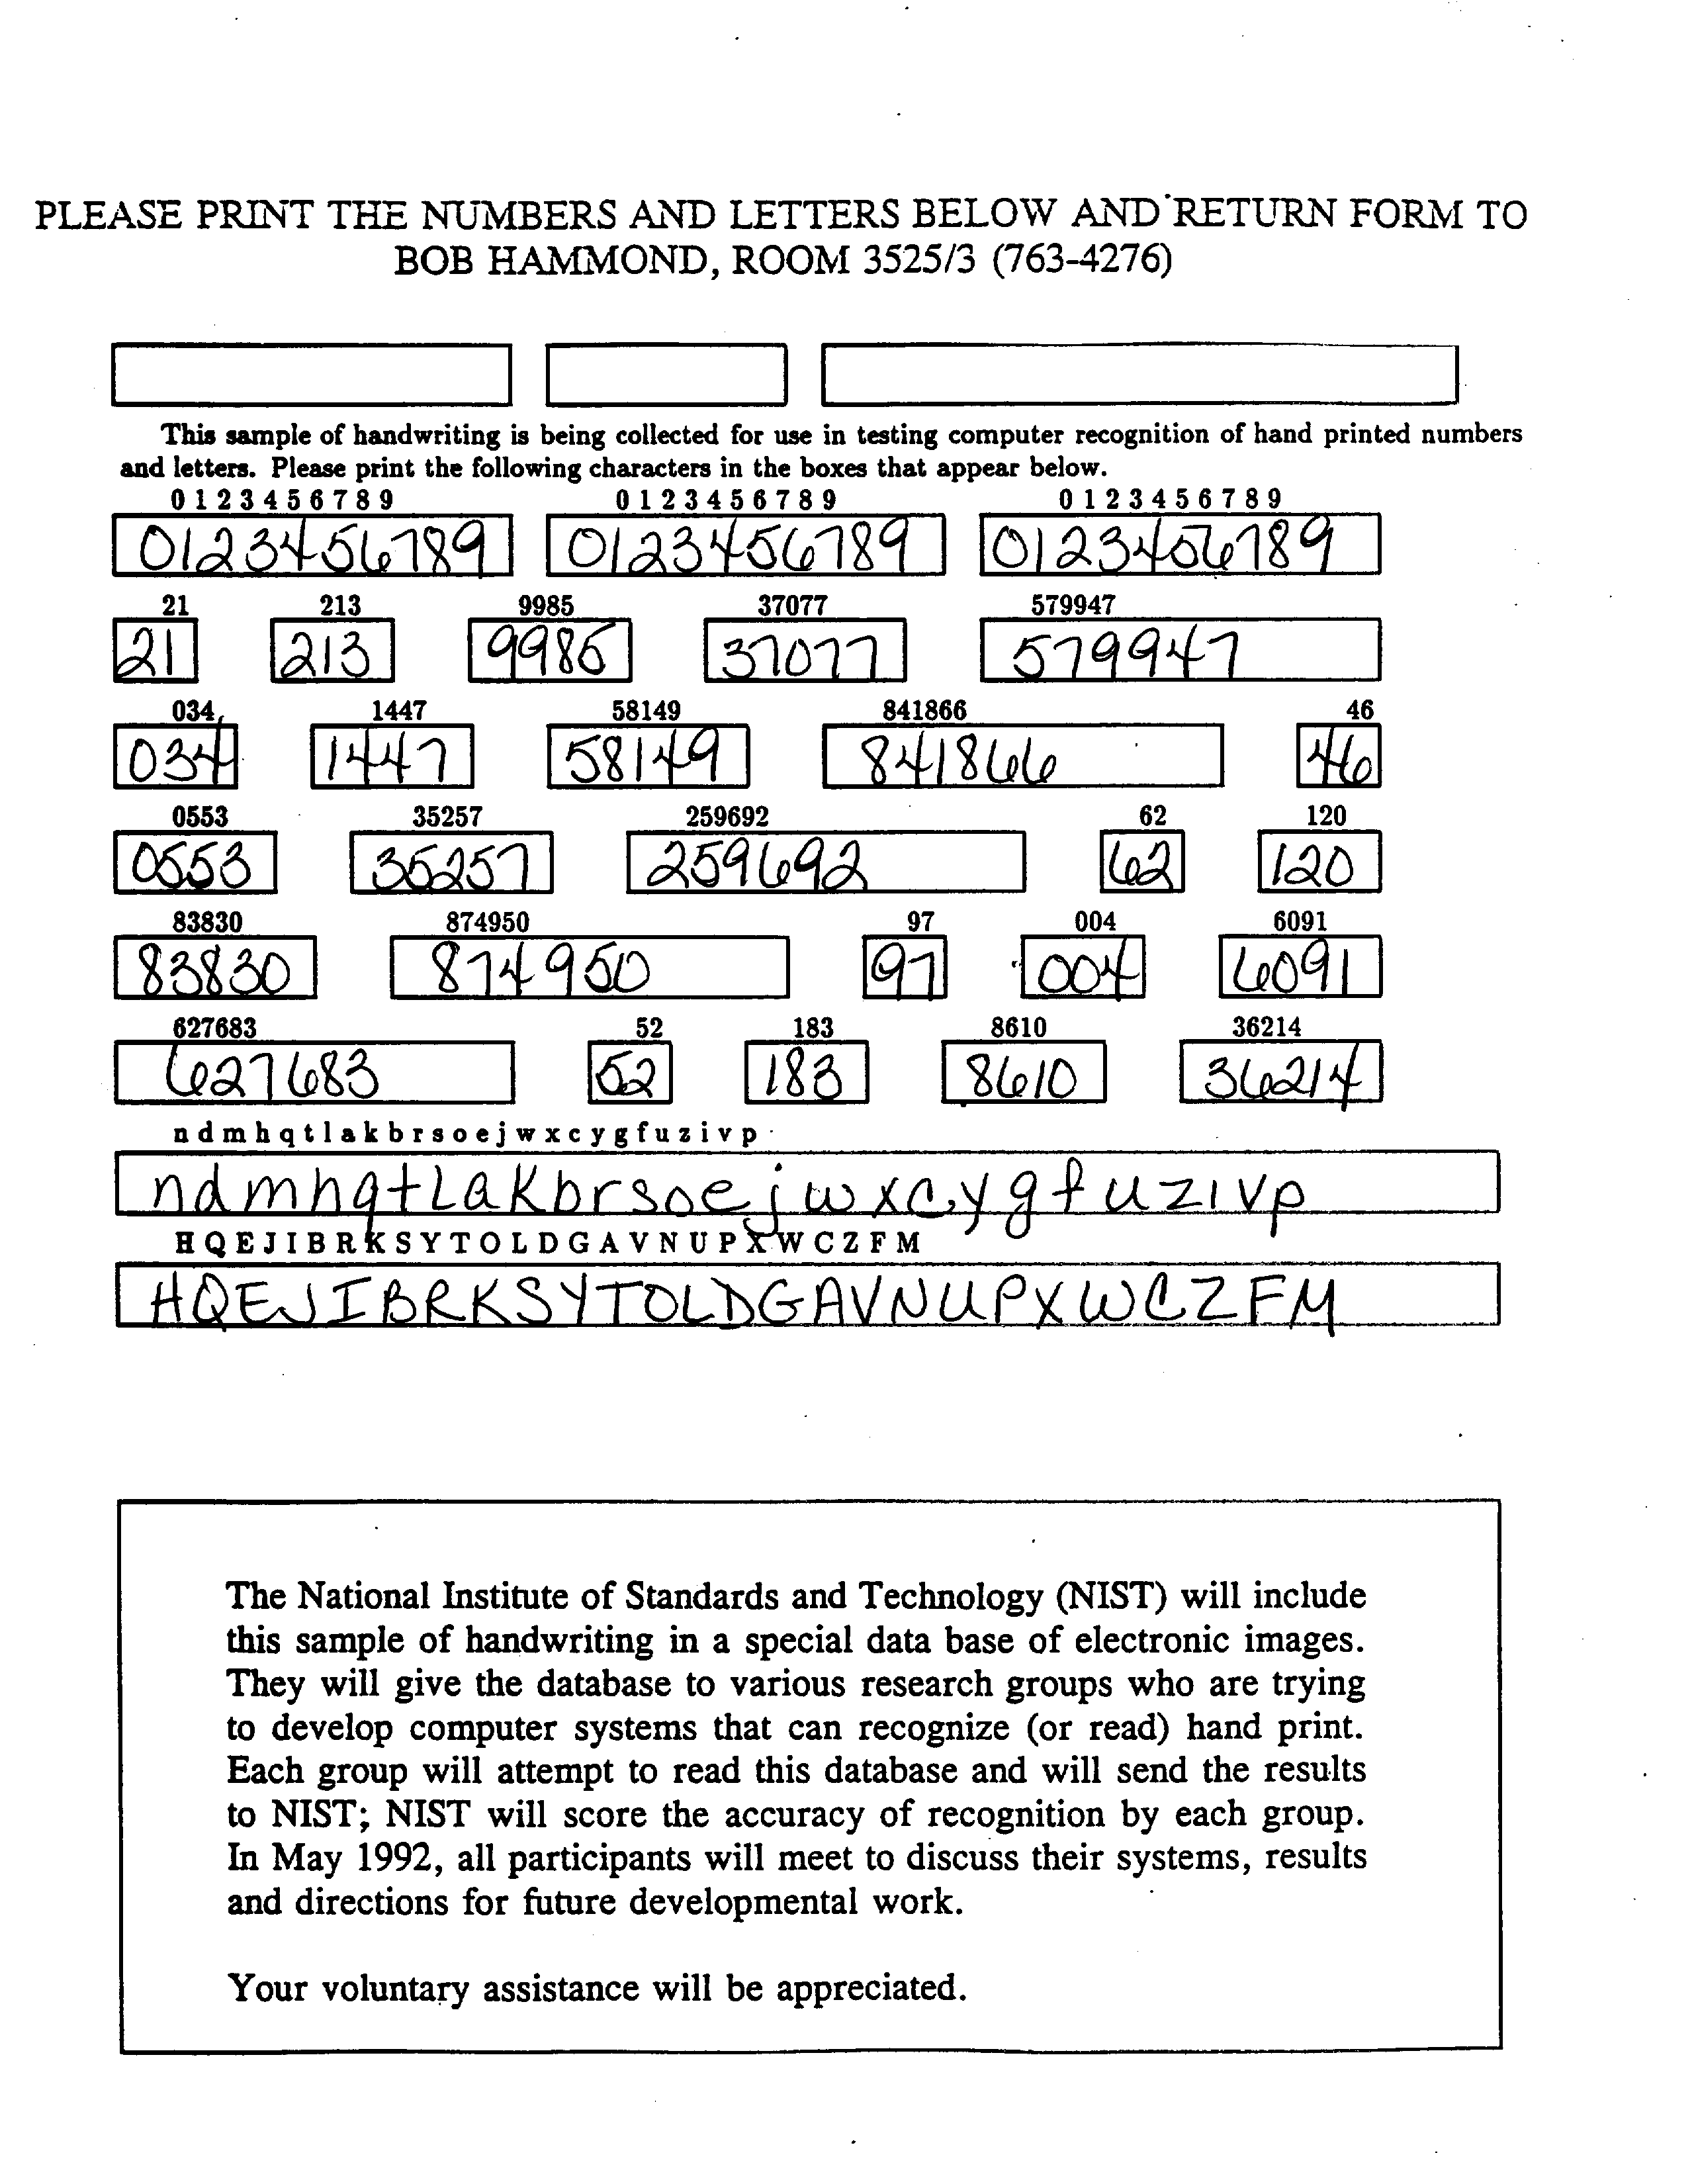 PLEASE PRINT THE NUMBERS AND LETTERS BELOW AND RETURN FORM TO
BOB HAMMOND, ROOM 3525/3 (763-4276)
This sample of handwriting is being collected for use in testing computer recognition of hand printed numbers
and letters. Please print the following characters in the boxes that appear below.
0 1 2 3 4 5 6 7 8 9 0 1 2 3 4 5 6 7 8 9 0 1 2 3 4 5 6 7 8 9
0123456789 0123456789 0123456789
21 213 9985 37077 579947
21 213 9985 37077 579947
034 1447 58149 841866 46
034 1447 58149 841866 46
0553 35257 259692 62 120
0553 35257 259692 62 120
83830 874950 97 004 6091
83830 874950 97 004 6091
627683 52 183 8610 36214
627683 52 183 8610 36214
n d m h q t l a k b r s o e j w x c y g f u z i v p
ndmhqtLaKbrsoejwxcygfuzivp
H Q E J I B R K S Y T O L D G A V N U P X W C Z F M
HQEJIBRKSYTOLDGAVNUPXWCZFM
The National Institute of Standards and Technology (NIST) will include
this sample of handwriting in a special data base of electronic images.
They will give the database to various research groups who are trying
to develop computer systems that can recognize (or read) hand print.
Each group will attempt to read this database and will send the results
to NIST; NIST will score the accuracy of recognition by each group.
In May 1992, all participants will meet to discuss their systems, results
and directions for future developmental work.
Your voluntary assistance will be appreciated.